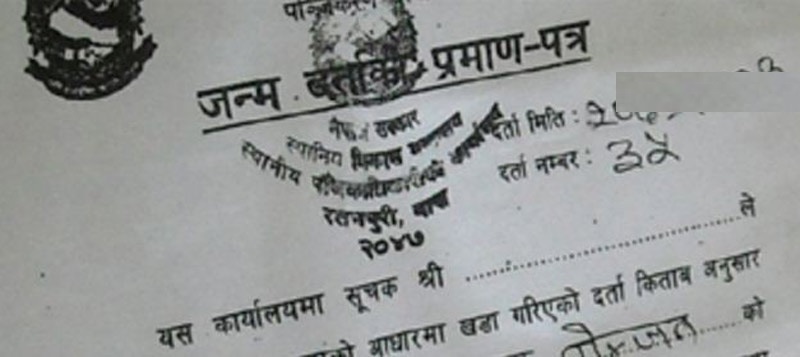 जन्म दर्ताको प्रमाण-पत्र
नेपाल सरकार
स्थानिय विकास मन्त्रालय
स्थानीय पञ्जिकाधिकारीको कार्यालय
रतनपुरी, बारा
२०४७
दर्ता मिति :
दर्ता नम्बर : ३५
यस कार्यालयमा सूचक श्री ............................ ले
आधारमा खडा गरिएको दर्ता किताब अनुसार
को